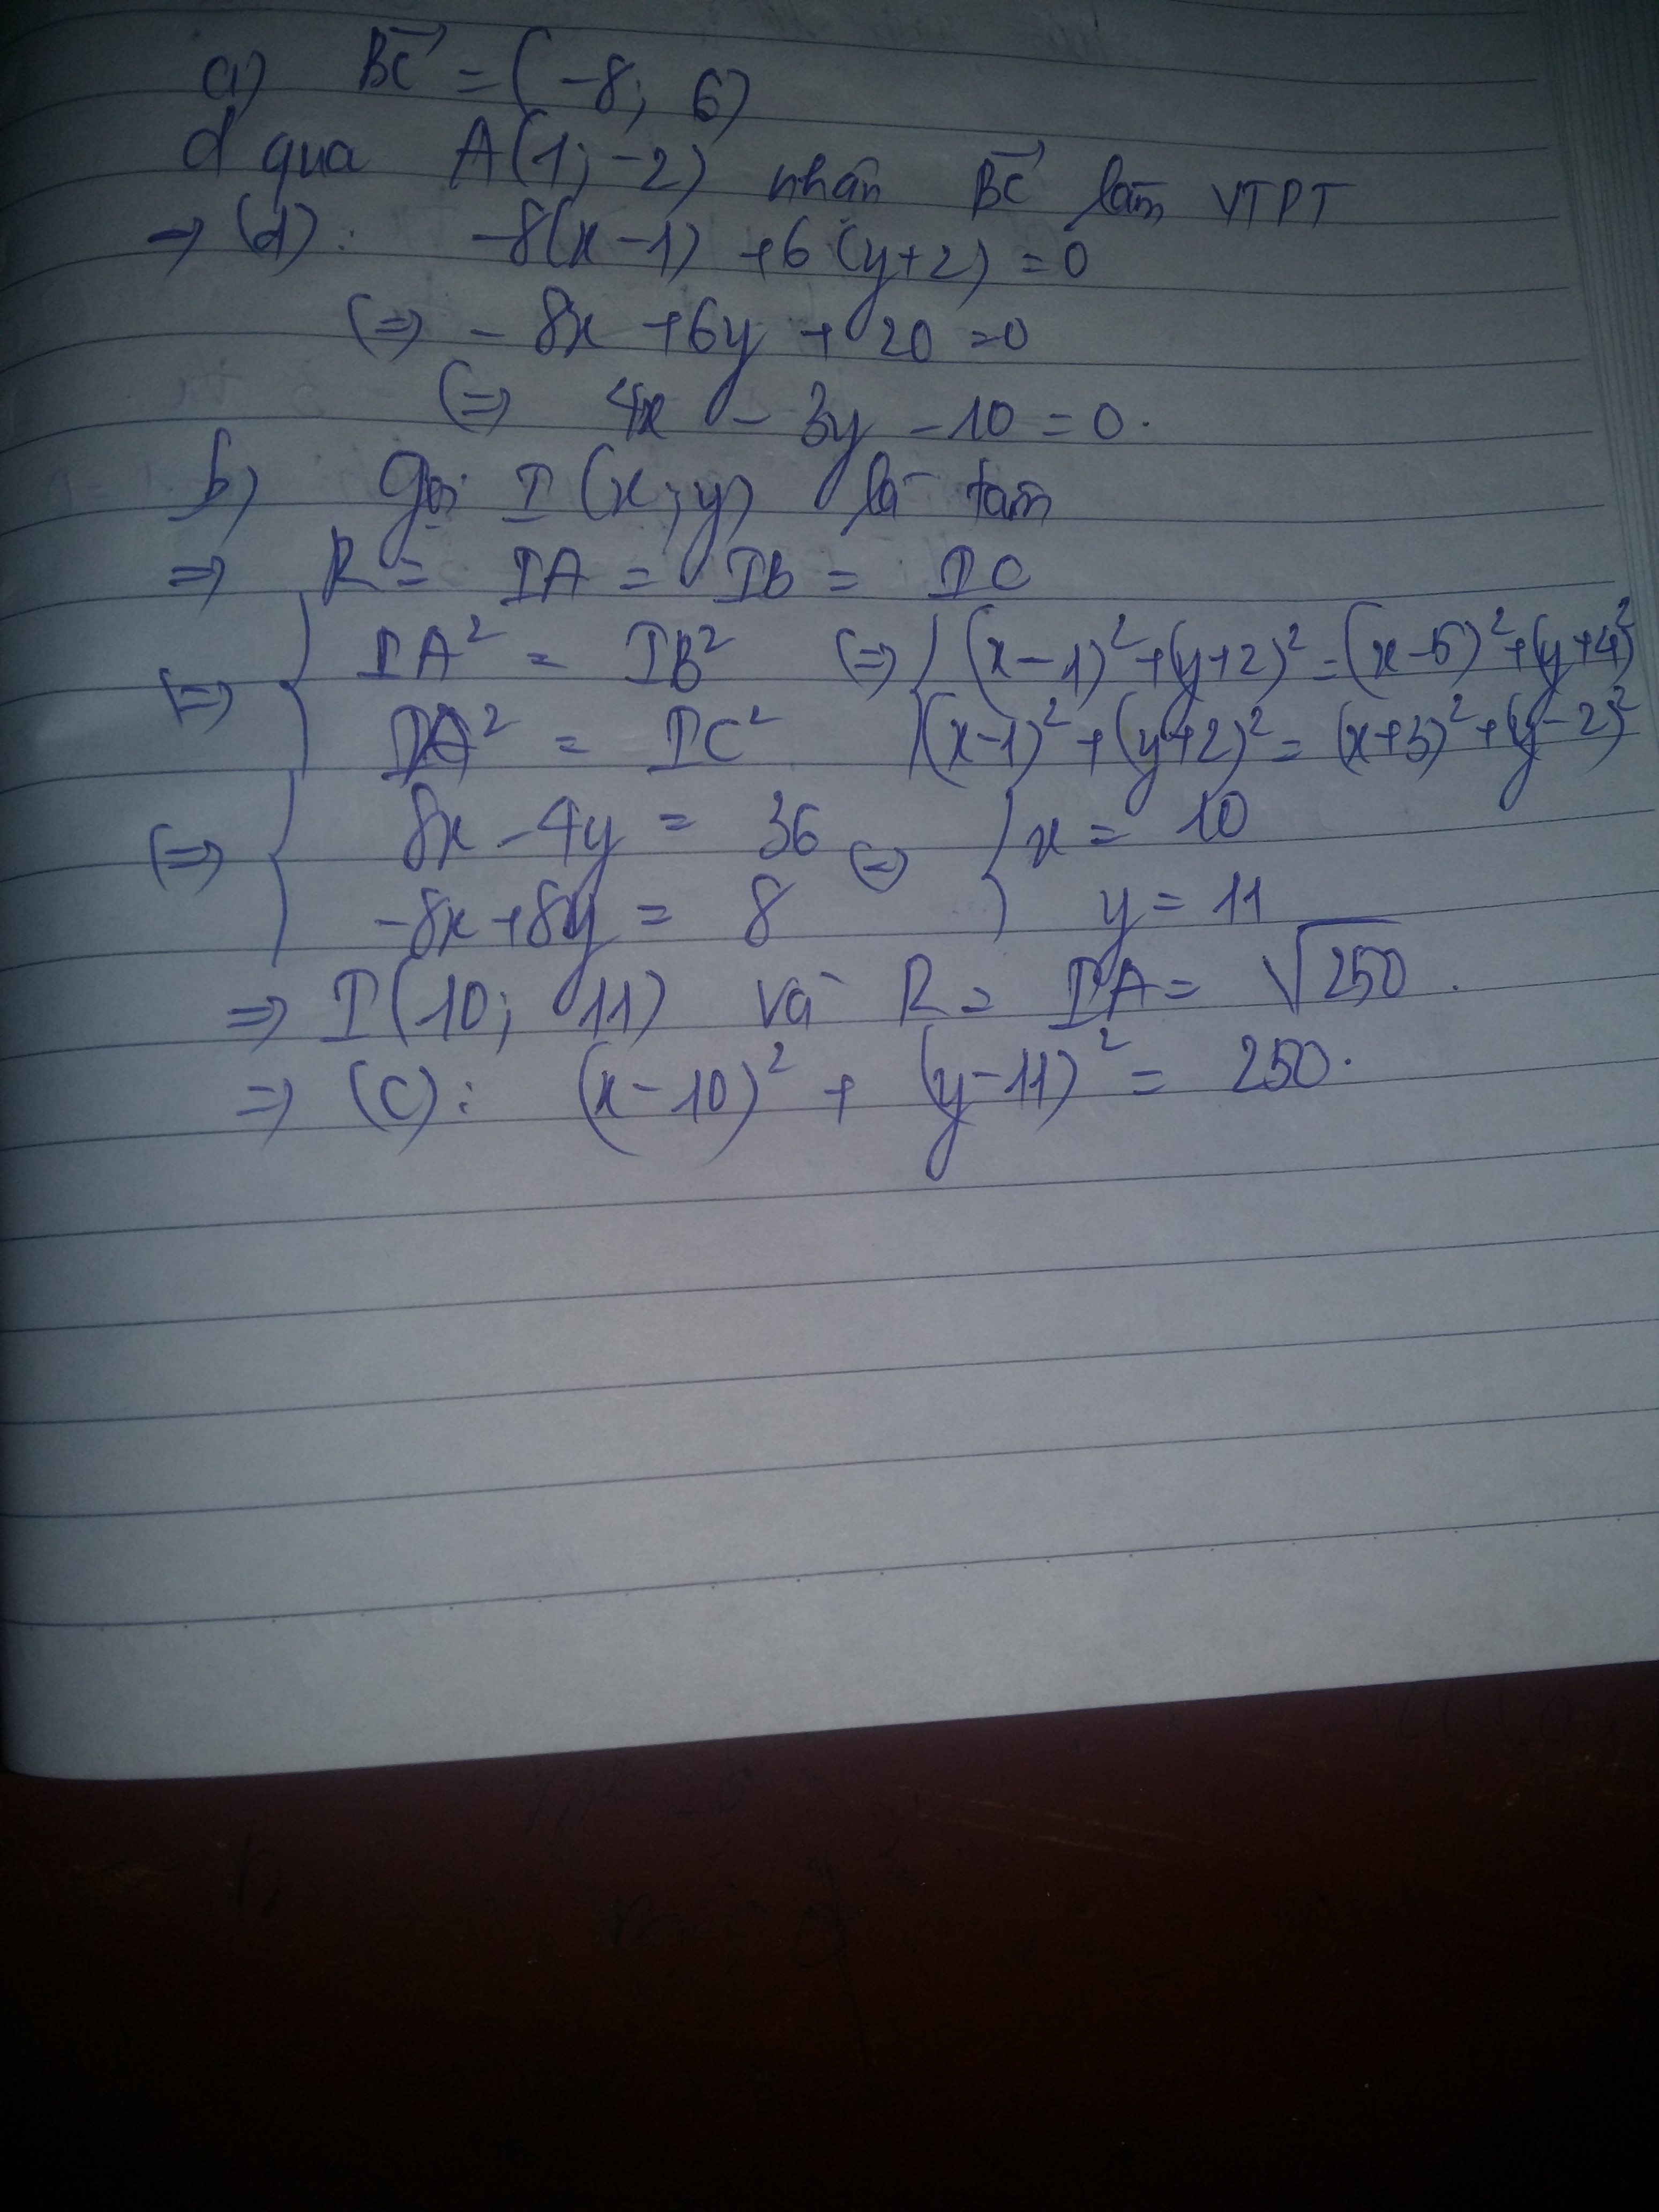 a) BC = (-8; 6)
d qua A(1; -2) nhân BC làm VTPT
→ (d): -8(x-1) + 6(y+2) = 0
(=) - 8x + 6y + 20 = 0
(=) 4x - 3y - 10 = 0.
b) Gọi I (x; y) là tâm
=> R = IA = IB = IC
(=) { IA² = IB² (=) { (x-1)² + (y+2)² = (x-5)² + (y+4)²
IA² = IC² (x-1)² + (y+2)² = (x+3)² + (y-2)²
(=) { 8x - 4y = 36 (=) { x = 10
-8x + 8y = 8 y = 11
=> I (10; 11) và R = IA = √250.
=> (C): (x-10)² + (y-11)² = 250.